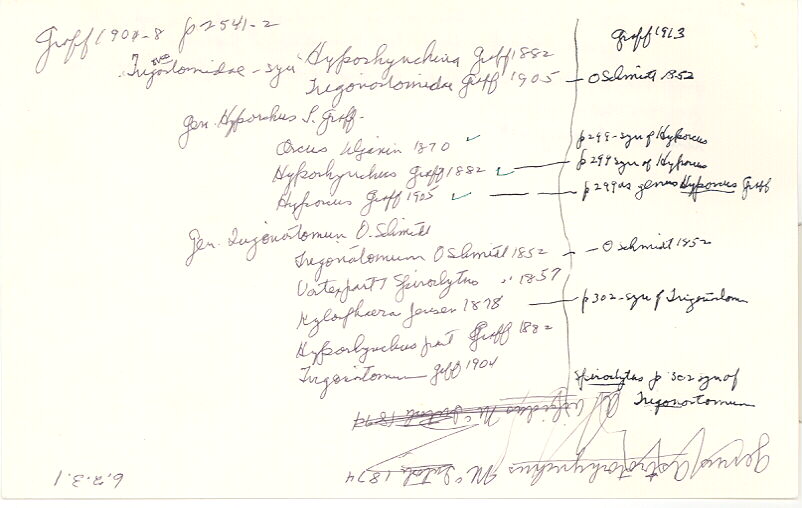 Graff 1904-8 p 2541-2
Graff 1913
Trigostomidae - syn Hyporhynchina Graff 1882
Trigonostomidae Graff 1905 - O Schmidt 1852
gen. Hyporchus L. Graff.
Orcus Uljanin 1870 p 299 - syn of Hyporcus
Hyporhynchus Graff 1882 - p 299 syn of Hyporcus
Hyporcus Graff 1905 - p 299 as genus Hyporcus Graff
gen. Trigonostomum O. Schmidt
Trigonostomum O Schmidt 1852 - O Schmidt 1852
Vortex part, Spiroclytus " 1857
Hylosphaera Jensen 1878 - p 302 - syn of Trigonostomum
Hyporhynchus part Graff 1882
Trigonostomum Graff 1904
Spiroclytus p 302 syn of
Trigonostomum
McIntosh 1874
genus Astrotorhynchus McIntosh 1874
6.2.3.1